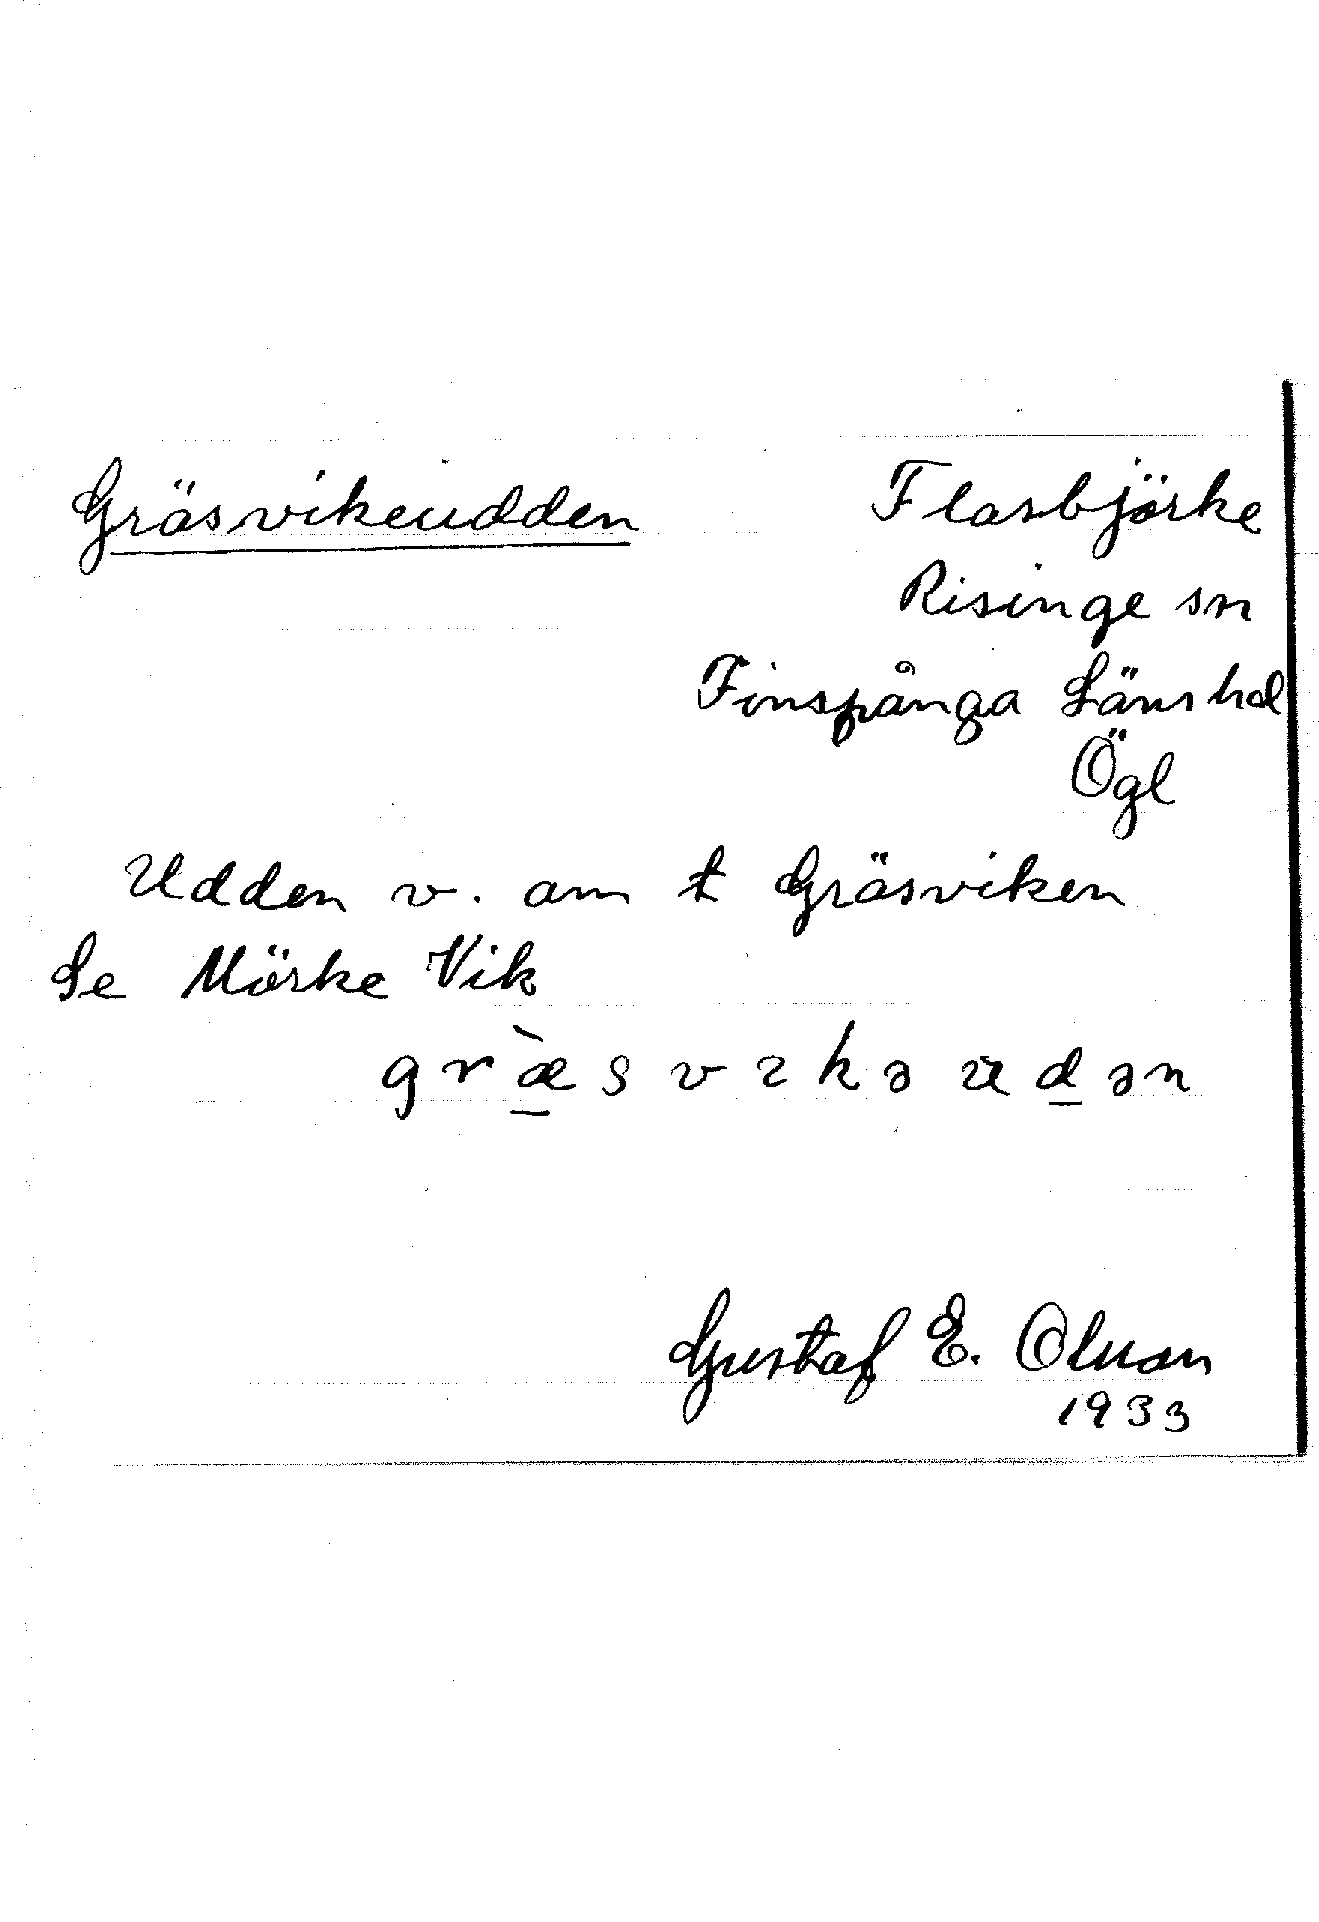 Gräsvikeudden
Flasbjörke
Risinge sn
Finspånga Läns hd
Ögl
Udden v. om t Gräsviken
Se Mörke Vik
græ̀svikəudən
Gustaf E. Olson
1933